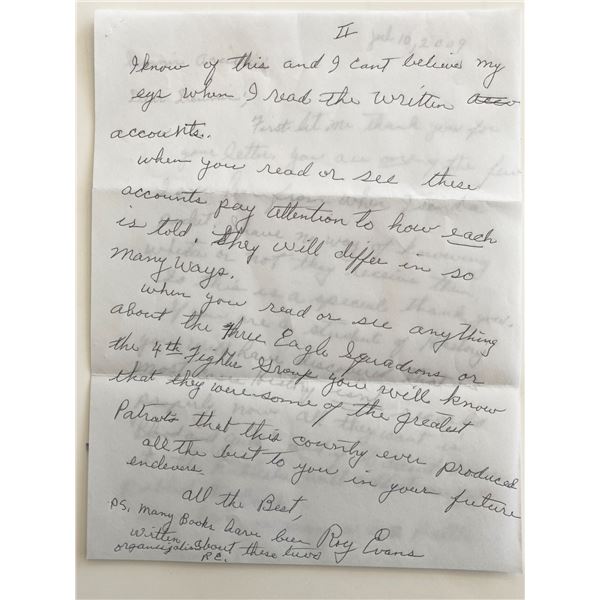 II
I know of this and I cant believe my
eys when I read the written accu
accounts.
when you read or see these
accounts pay attention to how each
is told. they will differ in so
many ways.
when you read or see anything
about the three Eagle Squadrons or
the 4th Fighter Group you will know
that they were some of the greatest
Patroits that this country ever produced
all the best to you in your future
endevers.
all the Best,
Roy Evans
PS. many Books have been
written about these two
organizations
R.E.